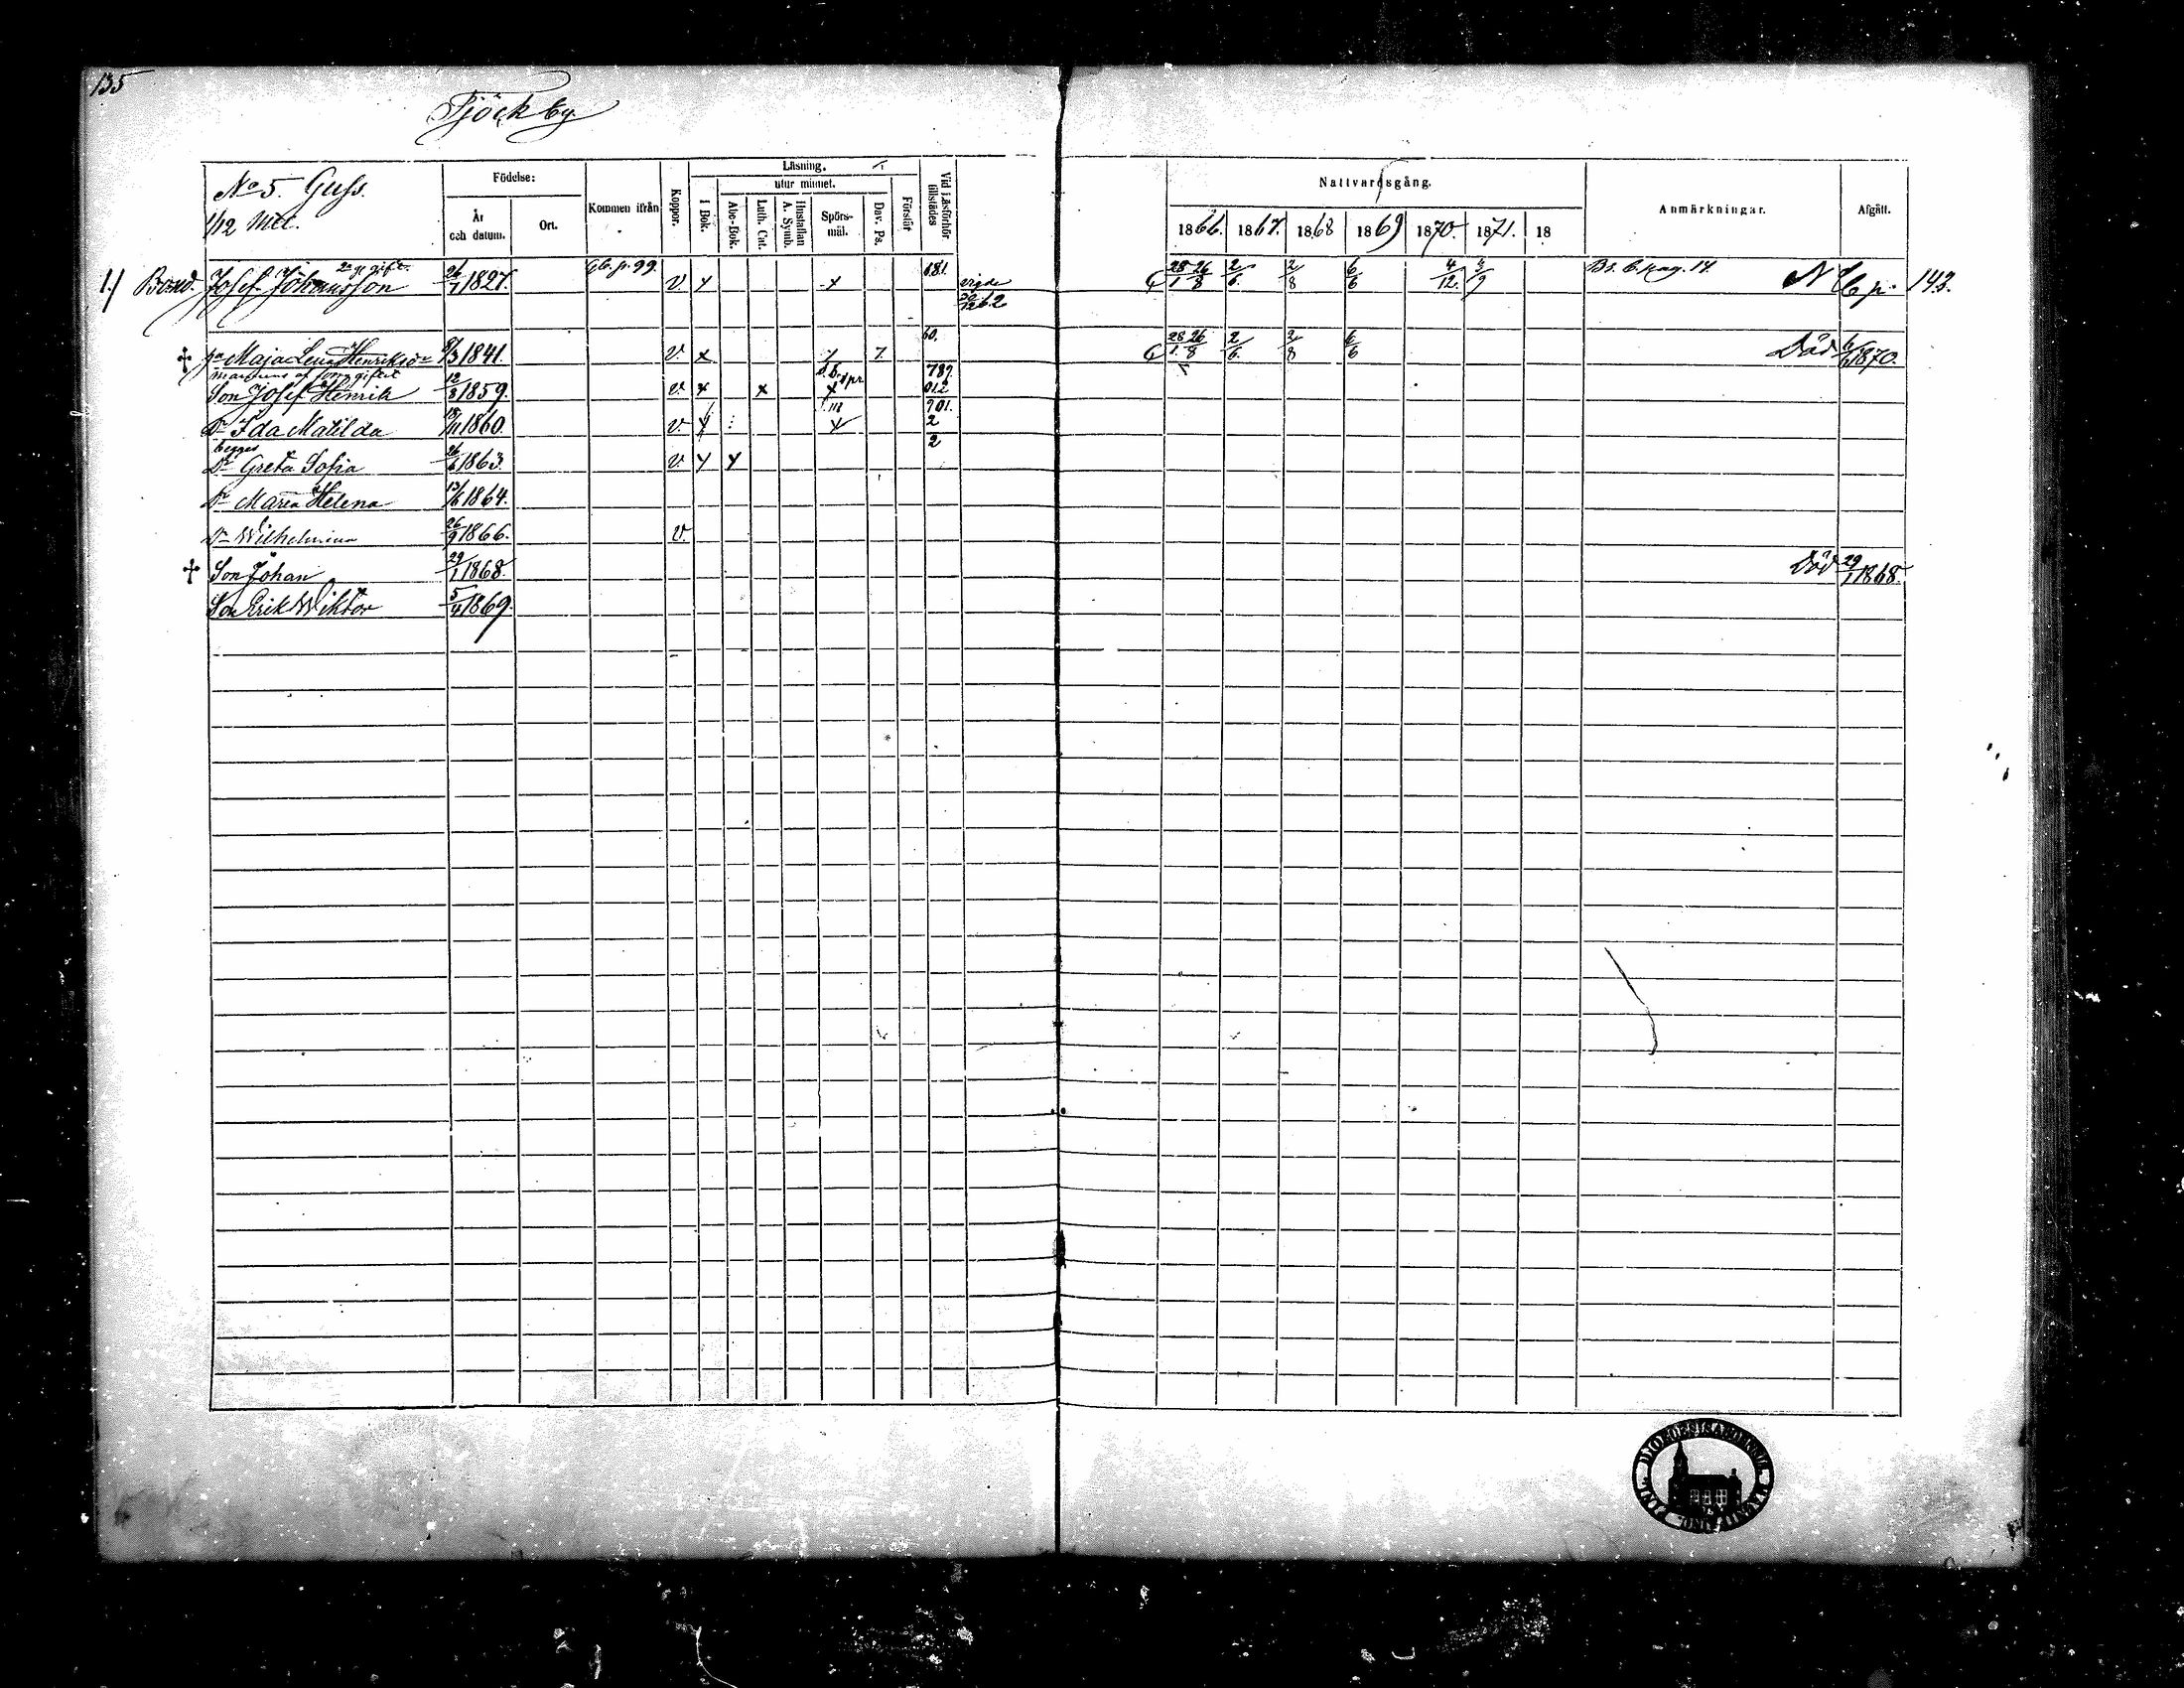 135
Tjöck by.
No 5. Guss.
1/12 Mtl.
Födelse:
År och datum.
Ort.
Kommen ifrån
Koppor.
Läsning.
utur minnet.
I Bok.
Abc-Bok.
Luth. Cat.
Hustaflan A. Symb.
Spörsmål.
Dav. Ps.
Förstår
Vid Läsförhör tillstädes
Nattvardsgång.
1866. 1867. 1868 1869 1870. 1871. 18
Anmärkningar.
Afgått.
1.) Bond. Josef Johansson 2 ggr gift. 26/1 1827. Gb. p. 99. v. x x 681. vigde 30/12 62 28/1 26/8 2/6. 2/8 6/6 4/12. 3/9 Bs. b. pag. 14. N b p. 143.
Maja Lena Henriksdr 1841. v. x 7 60. 28/1 26/8 2/6. 2/8 6/6 Död 1870.
mannens af förra giftet
Son Josef Henrik 12/3 1859. v. x x x 789. 012
Dr Ida Matilda 18/11 1860. v. x x 901. 2
begges
Dr Greta Sofia 26/6 1863. v. x x 2
Dr Maria Helena 13/6 1864.
Dr Wilhelmina 26/9 1866. v.
Son Johan 29/1 1868. Död 29/1 1868.
Son Erik Wiktor 5/4 1869.